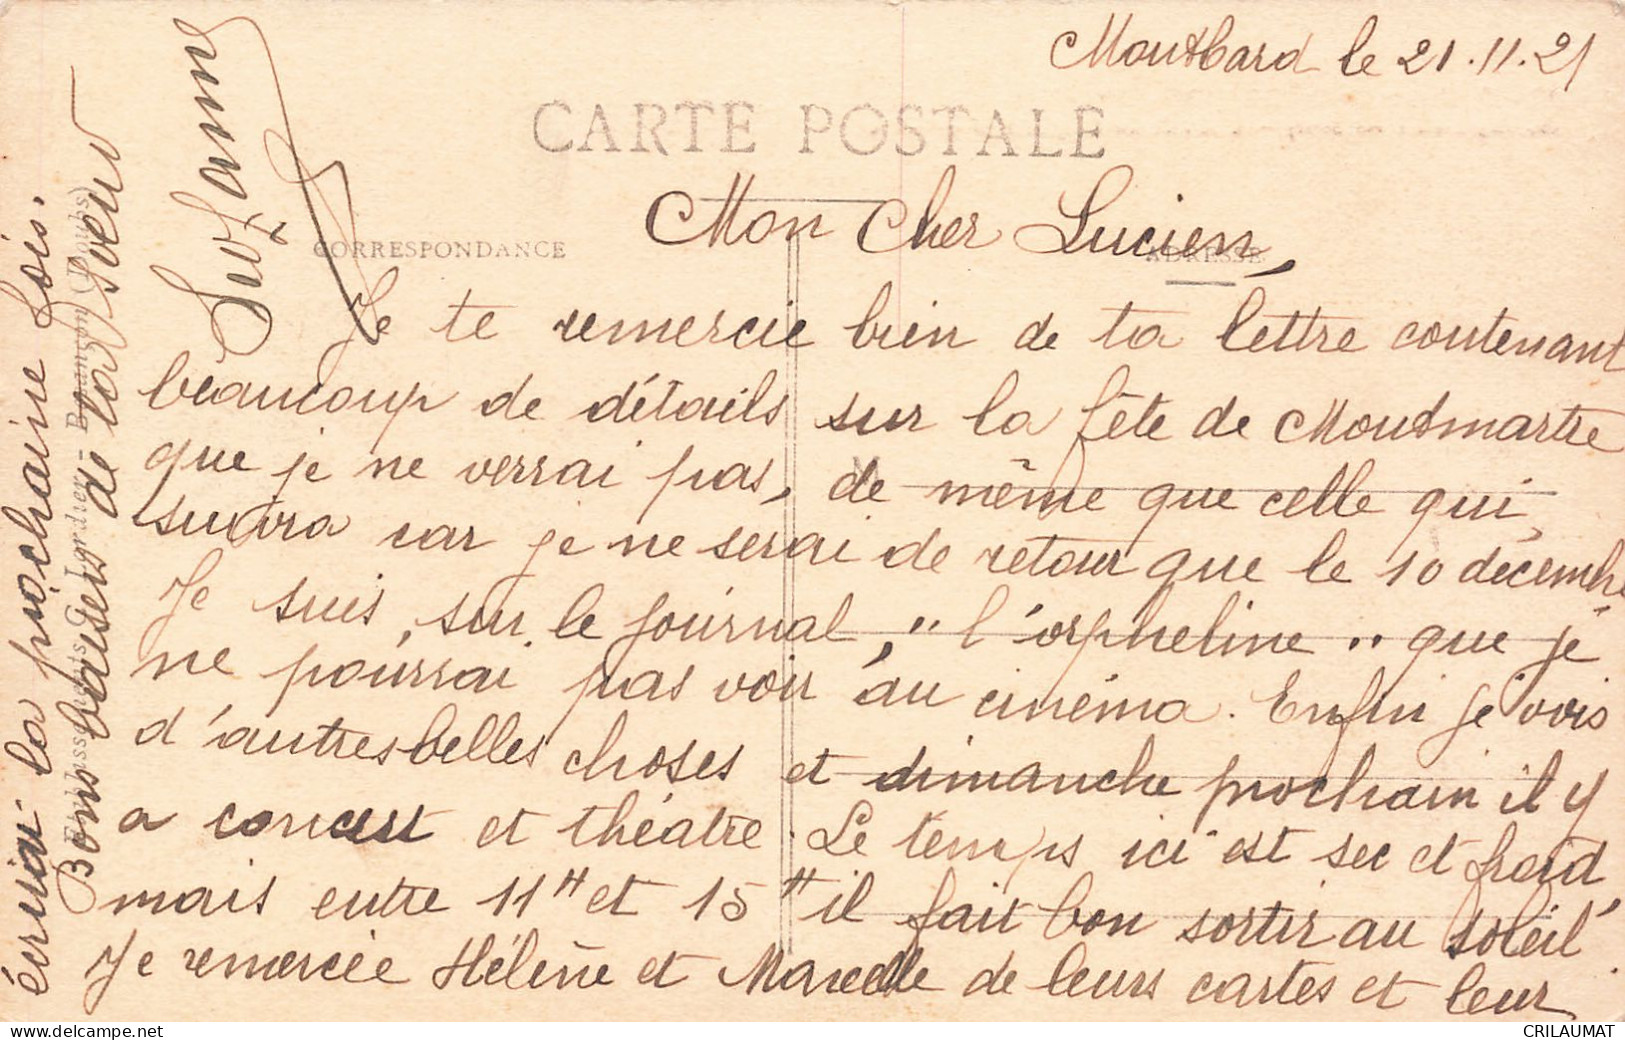 Montbard le 21.11.21
CARTE POSTALE
CORRESPONDANCE
ADRESSE
Mon Cher Lucien,
Je te remercie bien de ta lettre contenant
beaucoup de détails sur la fête de Montmartre
que je ne verrai pas, de même que celle qui
suivra car je ne serai de retour que le 10 décembre
Je suis, sur le journal, "l'orpheline" que je
ne pourrai pas voir au cinéma. Enfin je vois
d'autres belles choses et dimanche prochain il y
a concert et théatre. Le temps ici est sec et froid,
mais entre 11H et 15H il fait bon sortir au soleil.
Je remercie Hélène et Marcelle de leurs cartes et leur
écrirai la prochaine fois.
Bons baisers de ta soeur
Suzanne
Etablissements C. Lardier - Besançon (Doubs)
delcampe.net
CRILAUMAT